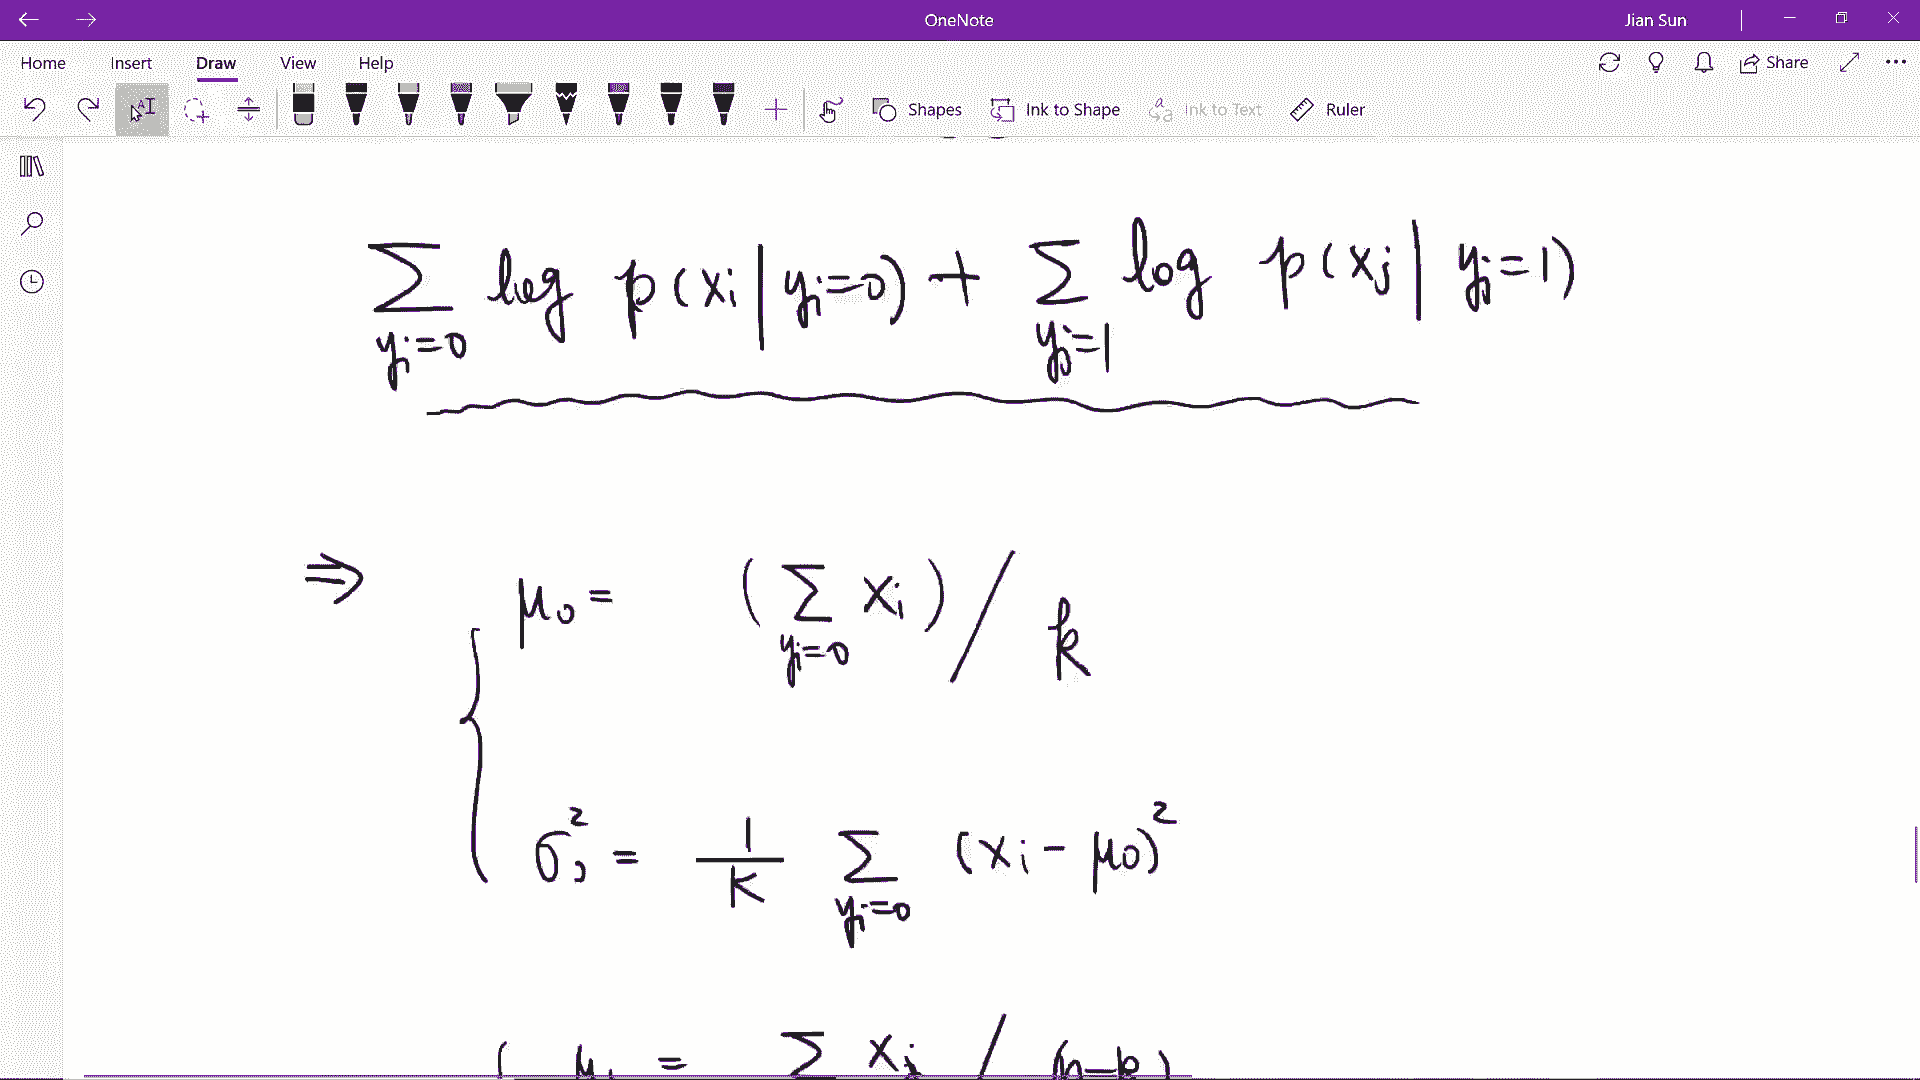 OneNote
Jian Sun
Home Insert Draw View Help
Share
Shapes Ink to Shape Ink to Text Ruler
∑ log p(xi | yi=0) + ∑ log p(xj | yj=1)
yi=0 yj=1
⇒ μ0 = (∑ xi) / k
yi=0
σ0² = 1/k ∑ (xi - μ0)²
yi=0
μ1 = ∑ xj / (n-k)